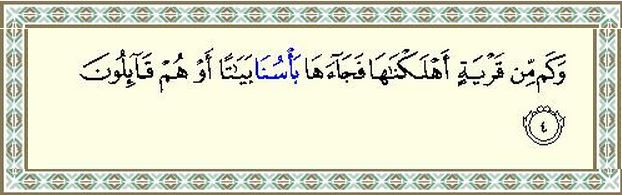 وَكَم مِّن قَرْيَةٍ أَهْلَكْنَٰهَا فَجَآءَهَا بَأْسُنَا بَيَٰتًا أَوْ هُمْ قَآئِلُونَ
٤